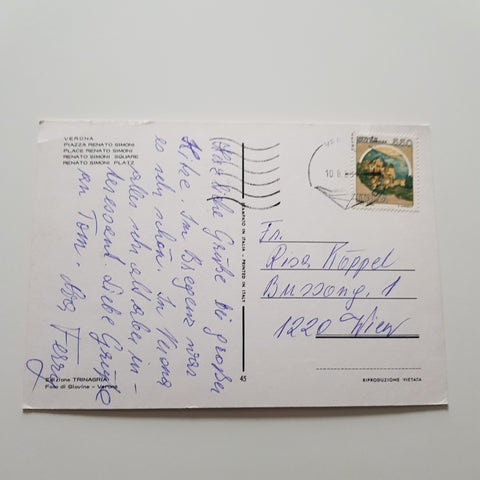 VERONA
PIAZZA RENATO SIMONI
PLACE RENATO SIMONI
RENATO SIMONI SQUARE
RENATO SIMONI PLATZ
Herzliche Grüße bei großer
Hitze. In Bregenz war
es sehr schön. In Verona
alles sehr alt aber in-
teressant Liebe Grüße
an Tom.
Edizione TRINAGRIA
Foto di Giovine - Verona
STAMPATO IN ITALIA - PRINTED IN ITALY
45
550
10.8.
Fr.
Rosa Köppel
1220 Wien
RIPRODUZIONE VIETATA